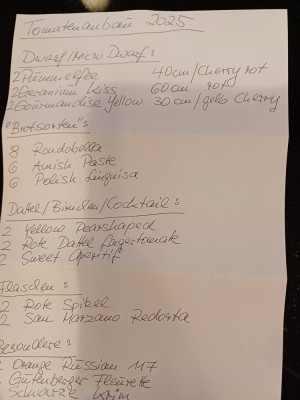 Tomatenanbau 2025
Dwarf/Micro Dwarf:
2 Pummelfee 40cm/Cherry rot
2 Geranium Kiss 60cm rot
2 Gourmandise Yellow 30cm/gelb Cherry
"Brotsorten":
8 Rondobella
6 Amish Paste
6 Polish Linguisa
Dattel/Birnchen/Cocktail:
2 Yellow Pearshaped
2 Rote Dattel
2 Sweet Aperitif
Flaschen:
2 Rote Spitzel
2 San Marzano Redorta
Besondere:
Orange Russian 117
Gutenberger Fleurette
Schwarze Krim